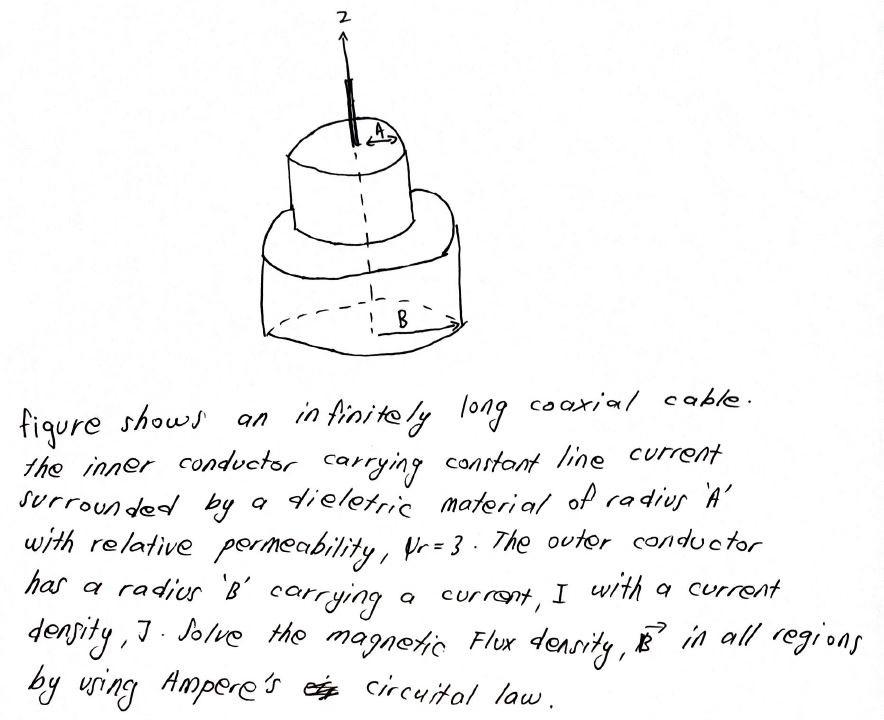 z
A
B
figure shows an infinitely long coaxial cable.
the inner conductor carrying constant line current
surrounded by a dieletric material of radius 'A'
with relative permeability, μr = 3. The outer conductor
has a radius 'B' carrying a current, I with a current
density, J. Solve the magnetic Flux density, B⃗ in all regions
by using Ampere's circuital law.